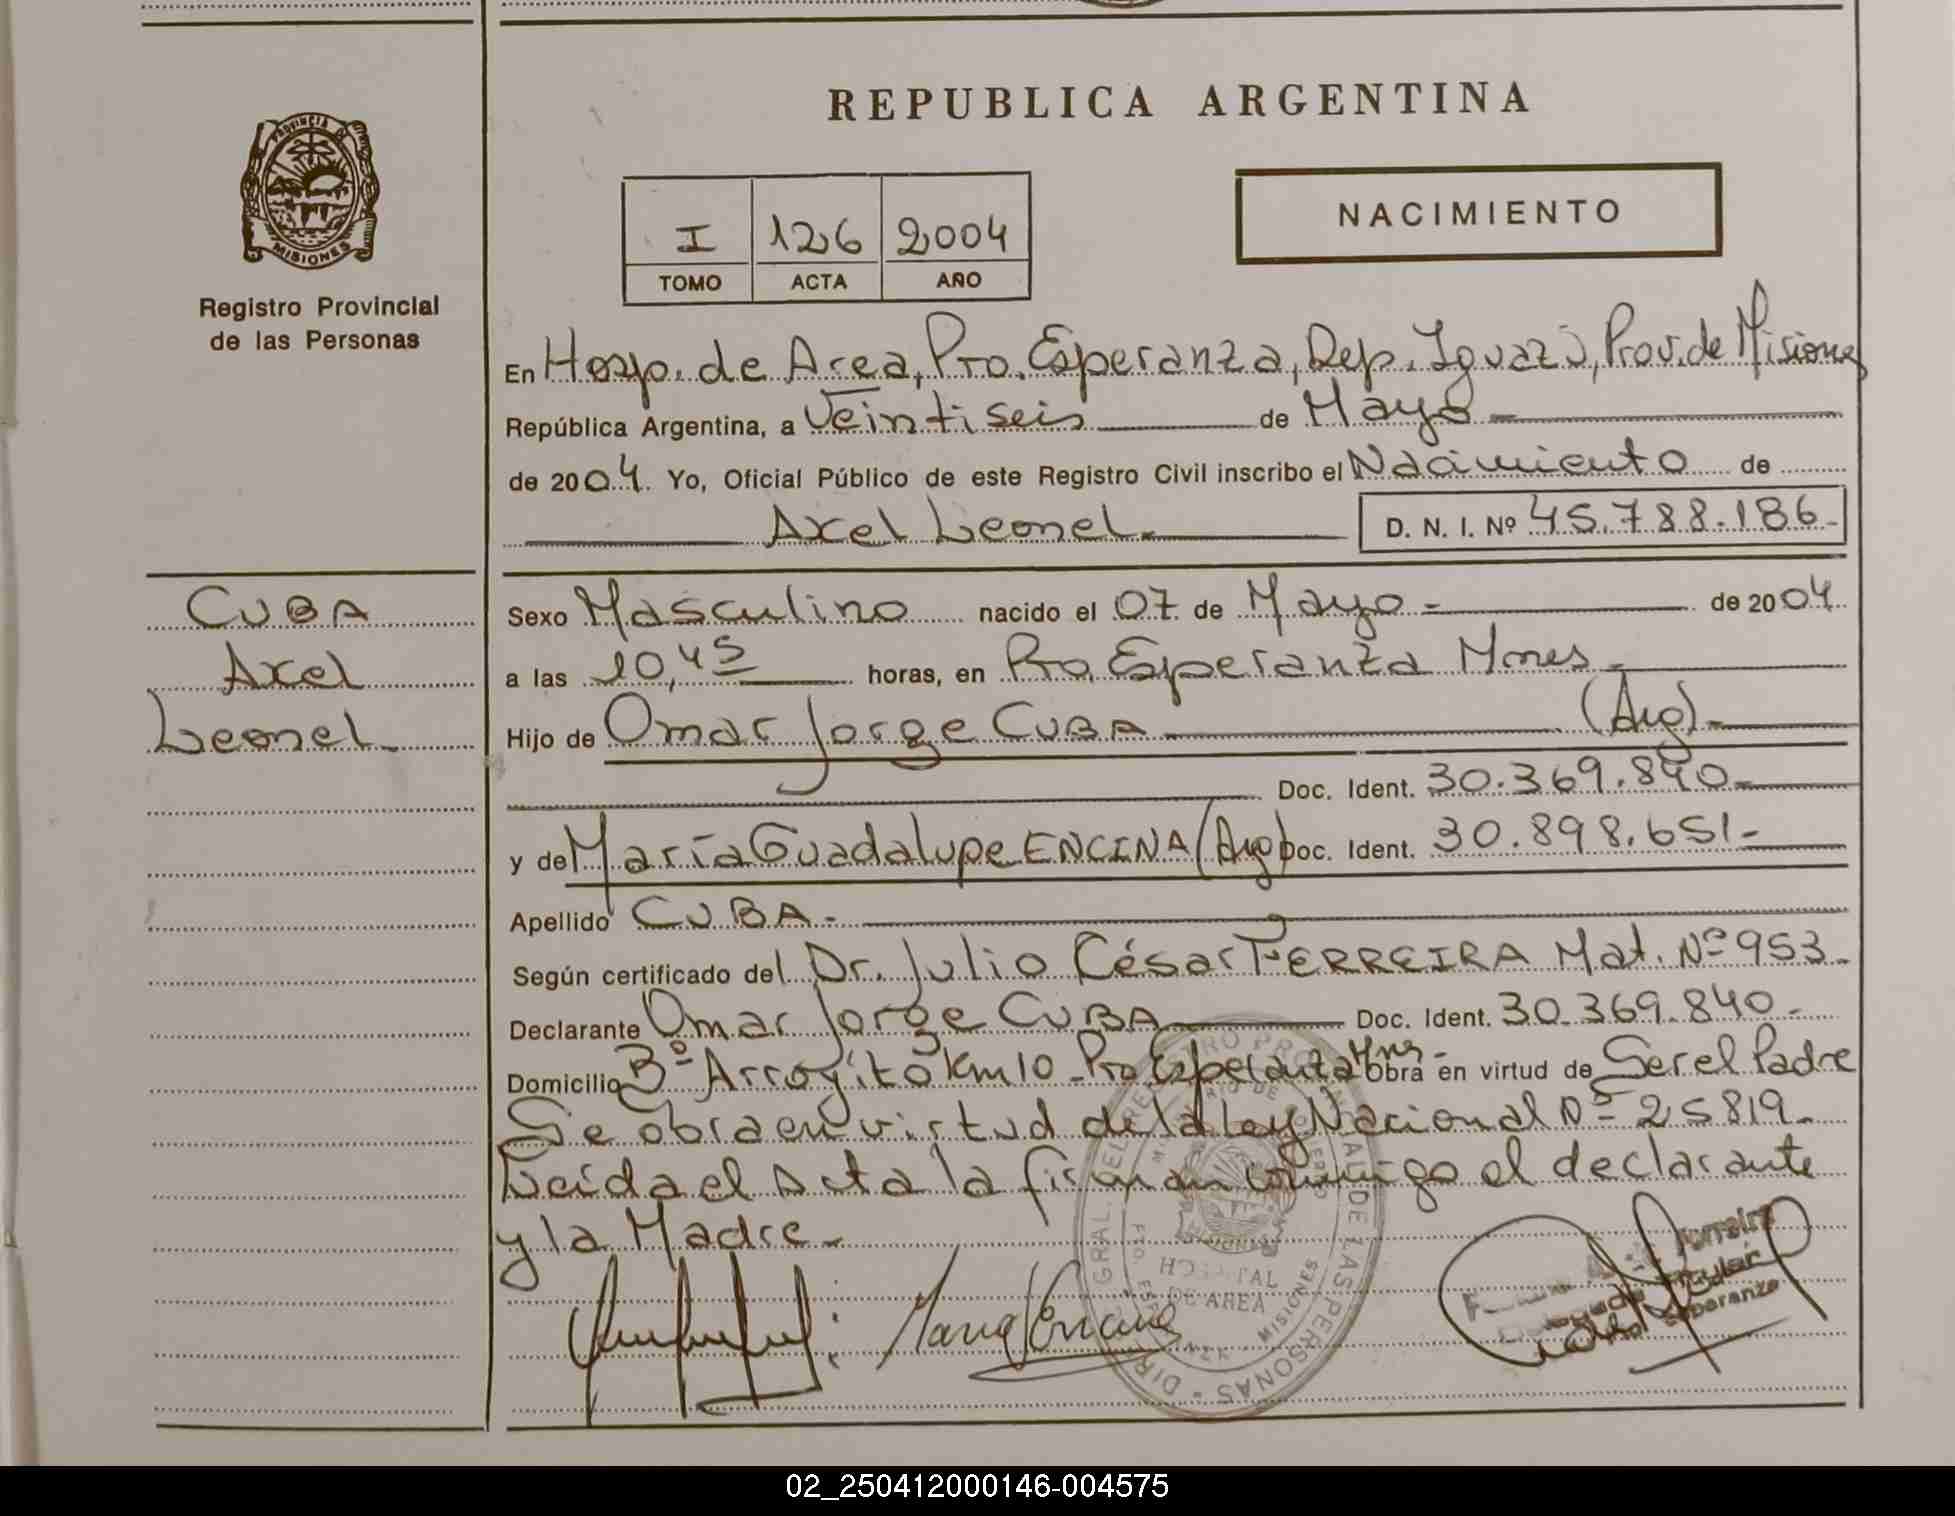 REPUBLICA ARGENTINA
PROVINCIA DE
MISIONES
Registro Provincial
de las Personas
I 126 2004
TOMO ACTA AÑO
NACIMIENTO
En Hosp. de Area, Pto. Esperanza, Dep. Iguazú, Prov. de Misiones
República Argentina, a Veintiseis de Mayo
de 2004. Yo, Oficial Público de este Registro Civil inscribo el Nacimiento de
Axel Leonel.
D. N. I. Nº 45.788.186.
CUBA
Axel
Leonel.
Sexo Masculino nacido el 07 de Mayo de 2004
a las 10,45 horas, en Pto. Esperanza Mnes.
Hijo de Omar Jorge CUBA (Arg).
Doc. Ident. 30.369.840.
y de María Guadalupe ENCINA (Arg) Doc. Ident. 30.898.651.
Apellido CUBA.
Según certificado del Dr. Julio César FERREIRA Mat. Nº 953.
Declarante Omar Jorge CUBA Doc. Ident. 30.369.840.
Domicilio Bº Arroyito Km 10 Pto. Esperanza Mnes. obra en virtud de Ser el Padre
Se obra en virtud de la Ley Nacional Nº 25819.
Leida el Acta la firman conmigo el declarante
y la Madre.
Maria Encina
HOSPITAL
DE AREA
MISIONES
DIR. GRAL. DEL REGISTRO PROVINCIAL DE LAS PERSONAS
Ferreira
Titular
Esperanza
02_250412000146-004575